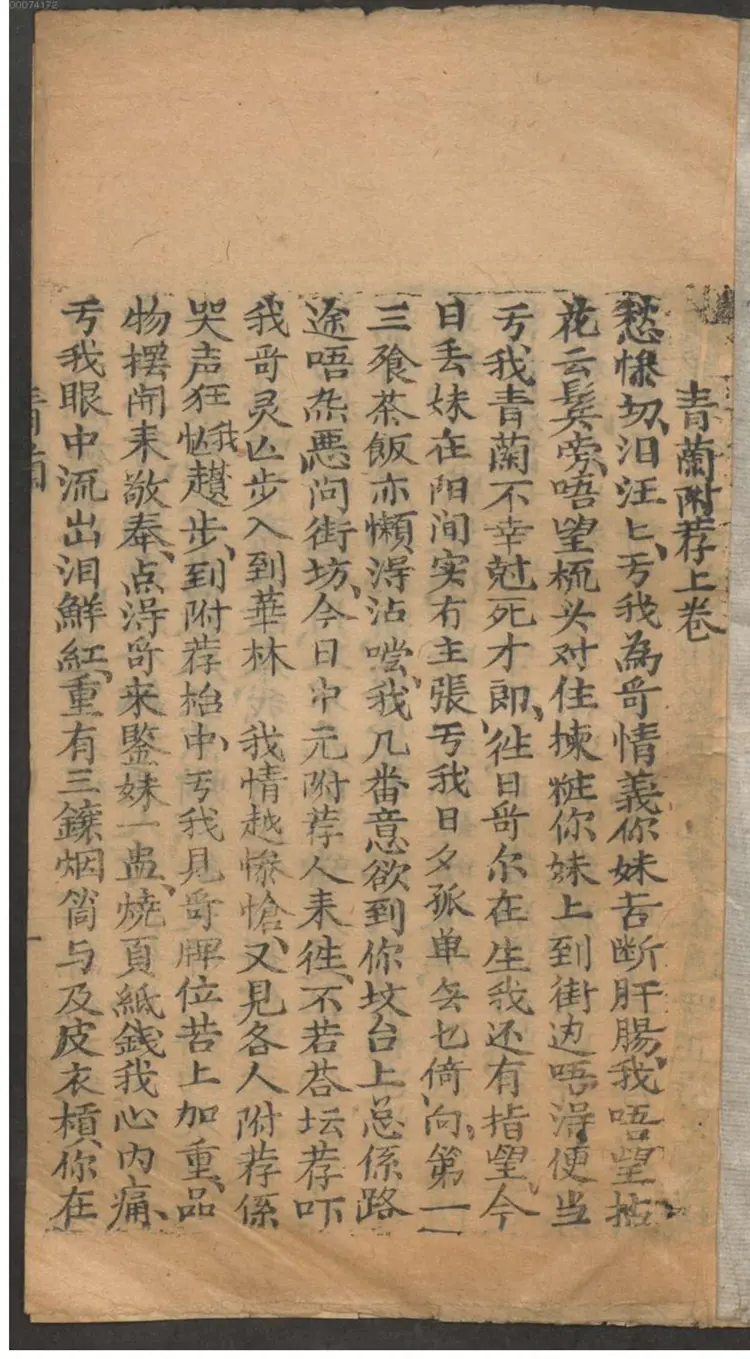 00074172
青蘭附荐上卷
愁慘切、泪汪匕、亏我為哥情義你妹苦断肝腸、我唔望拈
花云鬂旁、唔望梳头对住揀粧你妹上到街边唔淂便当
亏、我青蘭不幸尅死才郎、往日哥尔在生我还有指望、今
日丢妹在阳间实冇主張亏我日夕孤单無乜倚向、第一
三飱茶飯亦懶淂沾嚐、我几番意欲到你坟台上总係路
途唔熟悪问街坊、今日中元附荐人来徃、不若荅坛荐吓
我哥灵亾步入到華林 我情越慘愴、又見各人附荐係
哭声狂嚇我忙趲步、到附荐枱中、亏我見哥牌位苦上加重、品
物摆開来敬奉、点淂哥来鑒妹一盅、燒頁紙錢我心内痛、
亏我眼中流出泪鮮紅、重有三鑲烟筒与及皮衣槓、你在
青蘭